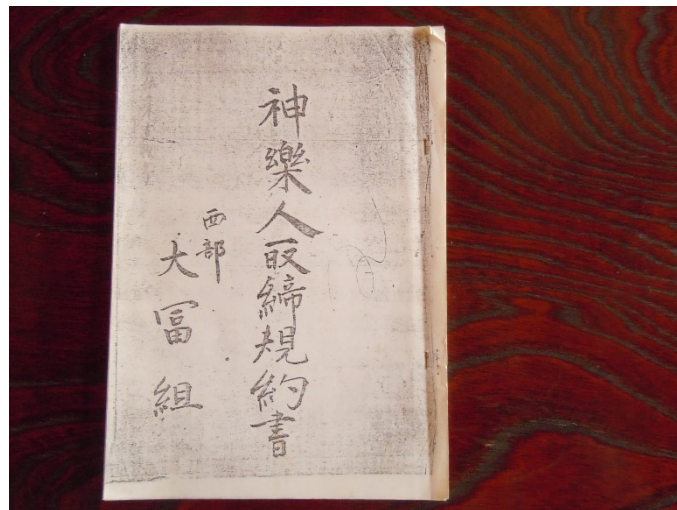 神樂人取締規約書
西部
大冨組